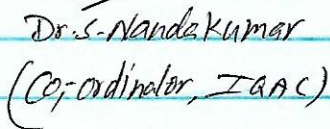 Dr. S. Nandakumar
(Co-ordinator, IQAC)